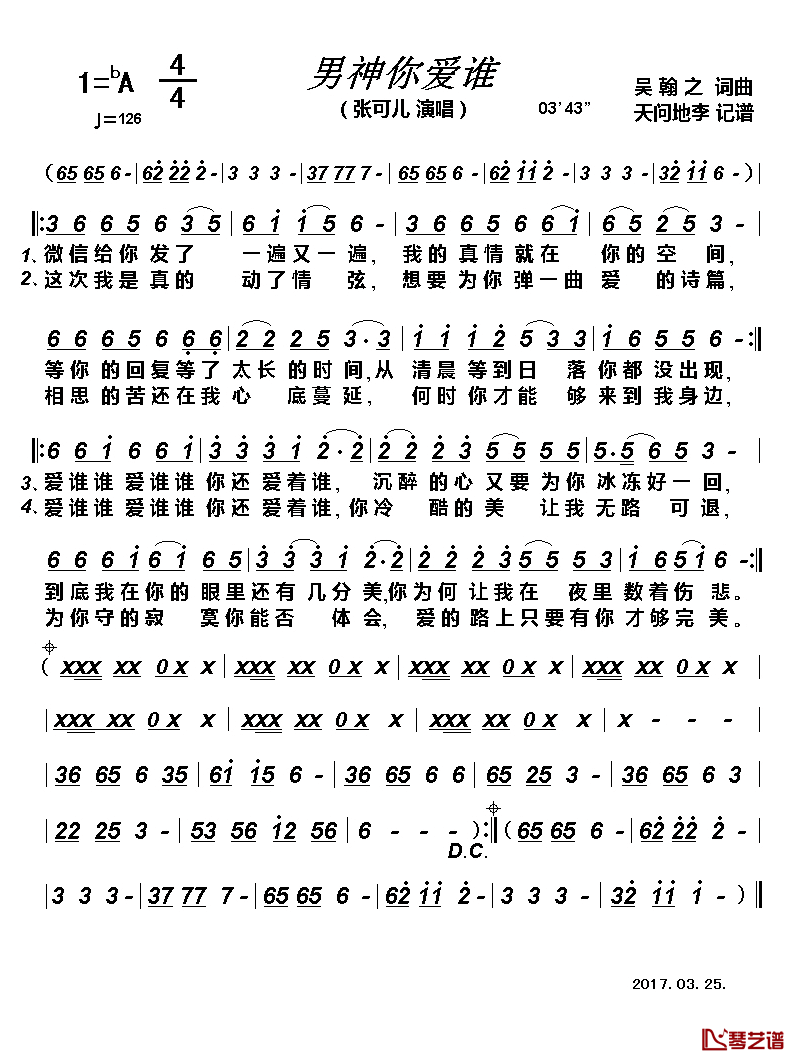 男神你爱谁
1=bA 4/4
吴翰之 词曲
♩=126
（张可儿 演唱）
03'43”
天问地李 记谱
（65 65 6 - | 62̇ 2̇2̇ 2̇ - | 3 3 3 - | 37 77 7 - | 65 65 6 - | 62̇ 1̇1̇ 2̇ - | 3 3 3 - | 32̇ 1̇1̇ 6 - ）|
‖: 3 6 6 5 6 3 5 | 6 1̇ 1̇ 5 6 - | 3 6 6 5 6 6 1̇ | 6 5 2 5 3 - |
1、微信给你 发了 一遍又一遍，我的真情就在 你的空 间，
2、这次我是真的 动了情 弦，想要为你 弹一曲 爱 的诗篇，
6 6 6 5 6 6̣ 6̣ | 2 2 2 5 3 · 3 | 1̇ 1̇ 1̇ 2̇ 5 3 3 | 1̇ 6 5 5 6 - :‖
等你 的回复等了 太长 的时 间,从 清晨 等到日 落你都 没出现，
相思 的苦还在我 心 底蔓 延， 何时 你才能 够 来到 我身边，
‖: 6 6 1̇ 6 6 1̇ | 3̇ 3̇ 3̇ 1̇ 2̇ · 2̇ | 2̇ 2̇ 2̇ 3̇ 5 5 5 | 5 · 5 6 5 3 - |
3、爱谁谁 爱谁谁 你还 爱着谁， 沉醉 的心 又要 为你 冰冻好 一 回，
4、爱谁谁 爱谁谁 你还 爱着谁，你冷 酷的美 让我 无路 可退，
6 6 6 1̇ 6 1̇ 6 5 | 3̇ 3̇ 3̇ 1̇ 2̇ · 2̇ | 2̇ 2̇ 2̇ 3̇ 5 5 5 | 1̇ 6 5 1̇ 6 - :‖
到底我在你的 眼里还有 几分 美,你为何 让我在 夜里 数着伤 悲。
为你 守的寂 寞你能否 体会， 爱的 路上只要有你 才够完 美。
（ xxx xx 0 x x | xxx xx 0 x x | xxx xx 0 x x | xxx xx 0 x x |
xxx xx 0 x x | xxx xx 0 x x | xxx xx 0 x x | x - - - |
36 65 6 35 | 61̇ 1̇5 6 - | 36 65 6 6 | 65 25 3 - | 36 65 6 3 |
22 25 3 - | 53 56 1̇2 56 | 6 - - - ）:‖（ 65 65 6 - | 62̇ 2̇2̇ 2̇ - |
D.C.
3 3 3 - | 37 77 7 - | 65 65 6 - | 62̇ 1̇1̇ 2̇ - | 3 3 3 - | 32̇ 1̇1̇ 1̇ - ）‖
2017.03.25.
琴艺谱